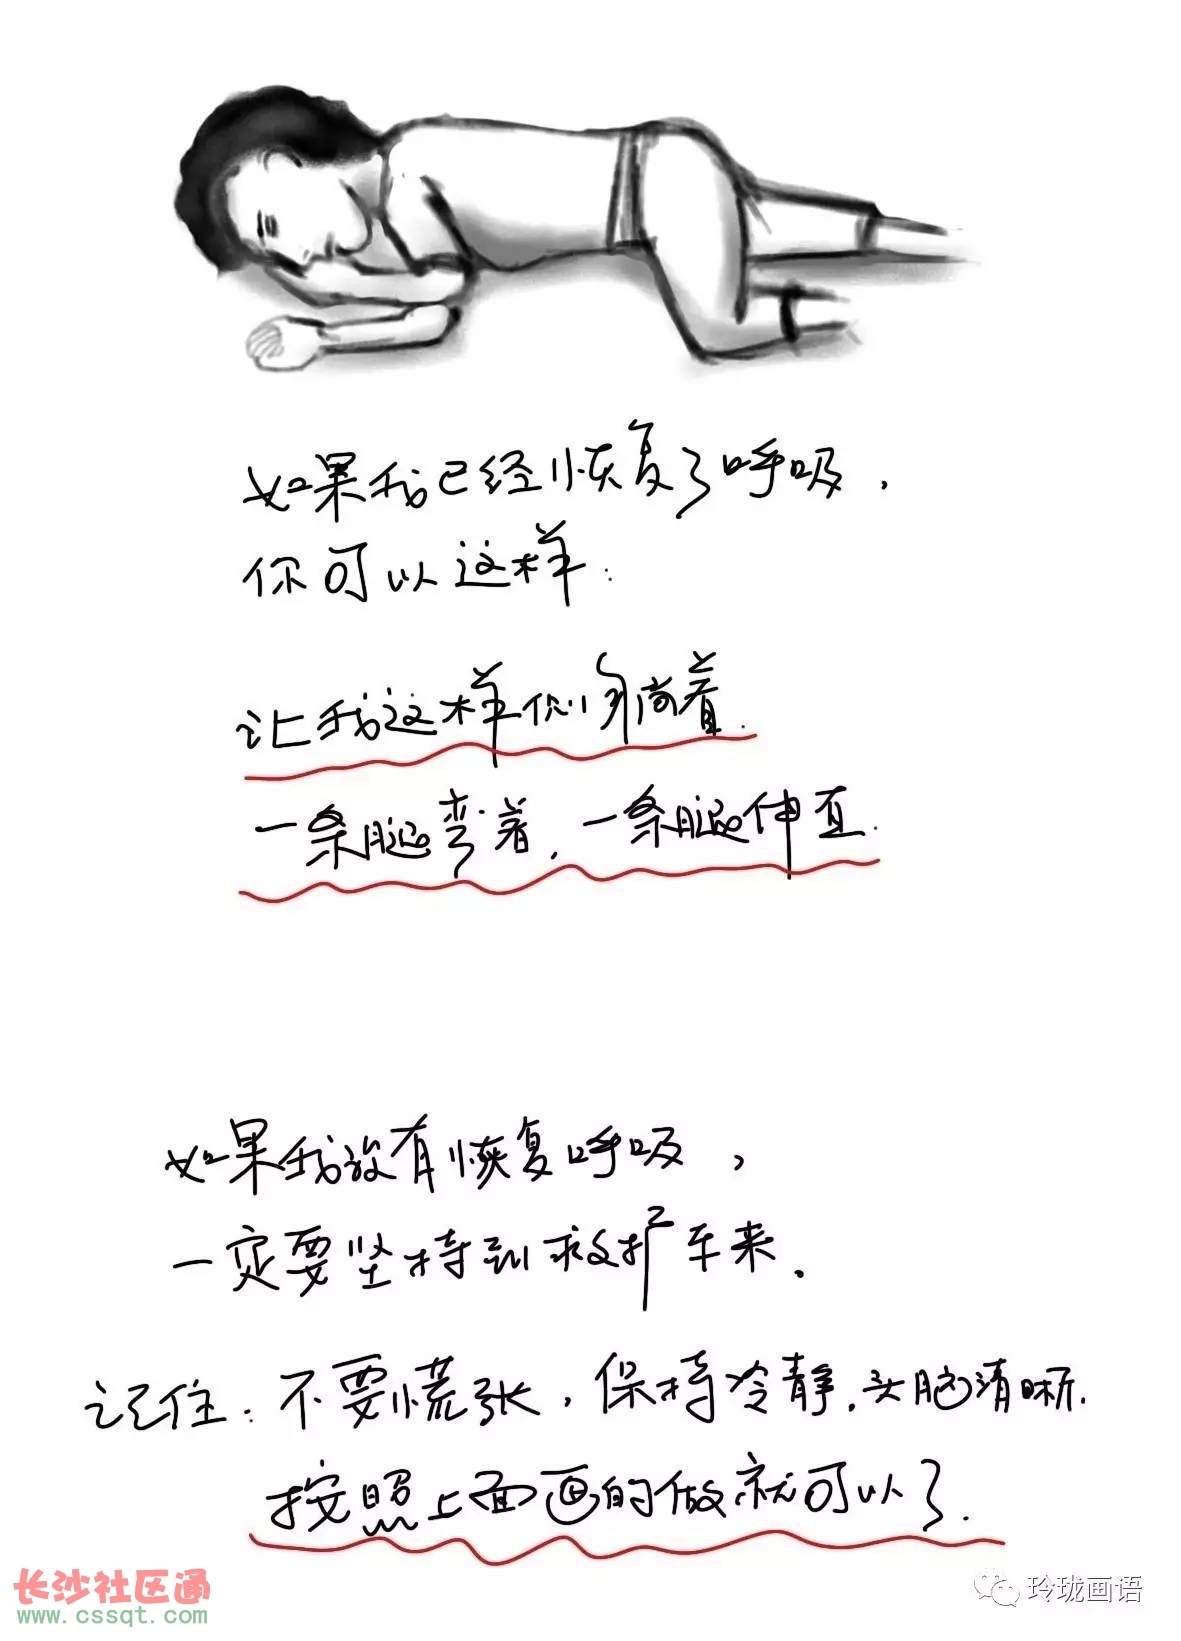 如果我已经恢复了呼吸，
你可以这样：
让我这样侧身躺着.
一条腿弯着，一条腿伸直.
如果我没有恢复呼吸，
一定要坚持到救护车来.
记住：不要慌张，保持冷静.头脑清晰.
按照上面画的做就可以了.
长沙社区通
www.cssqt.com
玲珑画语